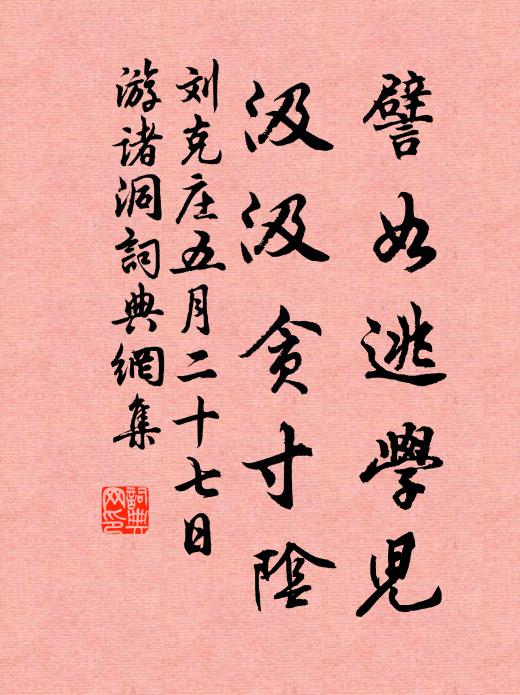 譬如逃學兒
汲汲貪寸陰
刘克庄五月二十七日
游诸洞詞典網集
詞典网印